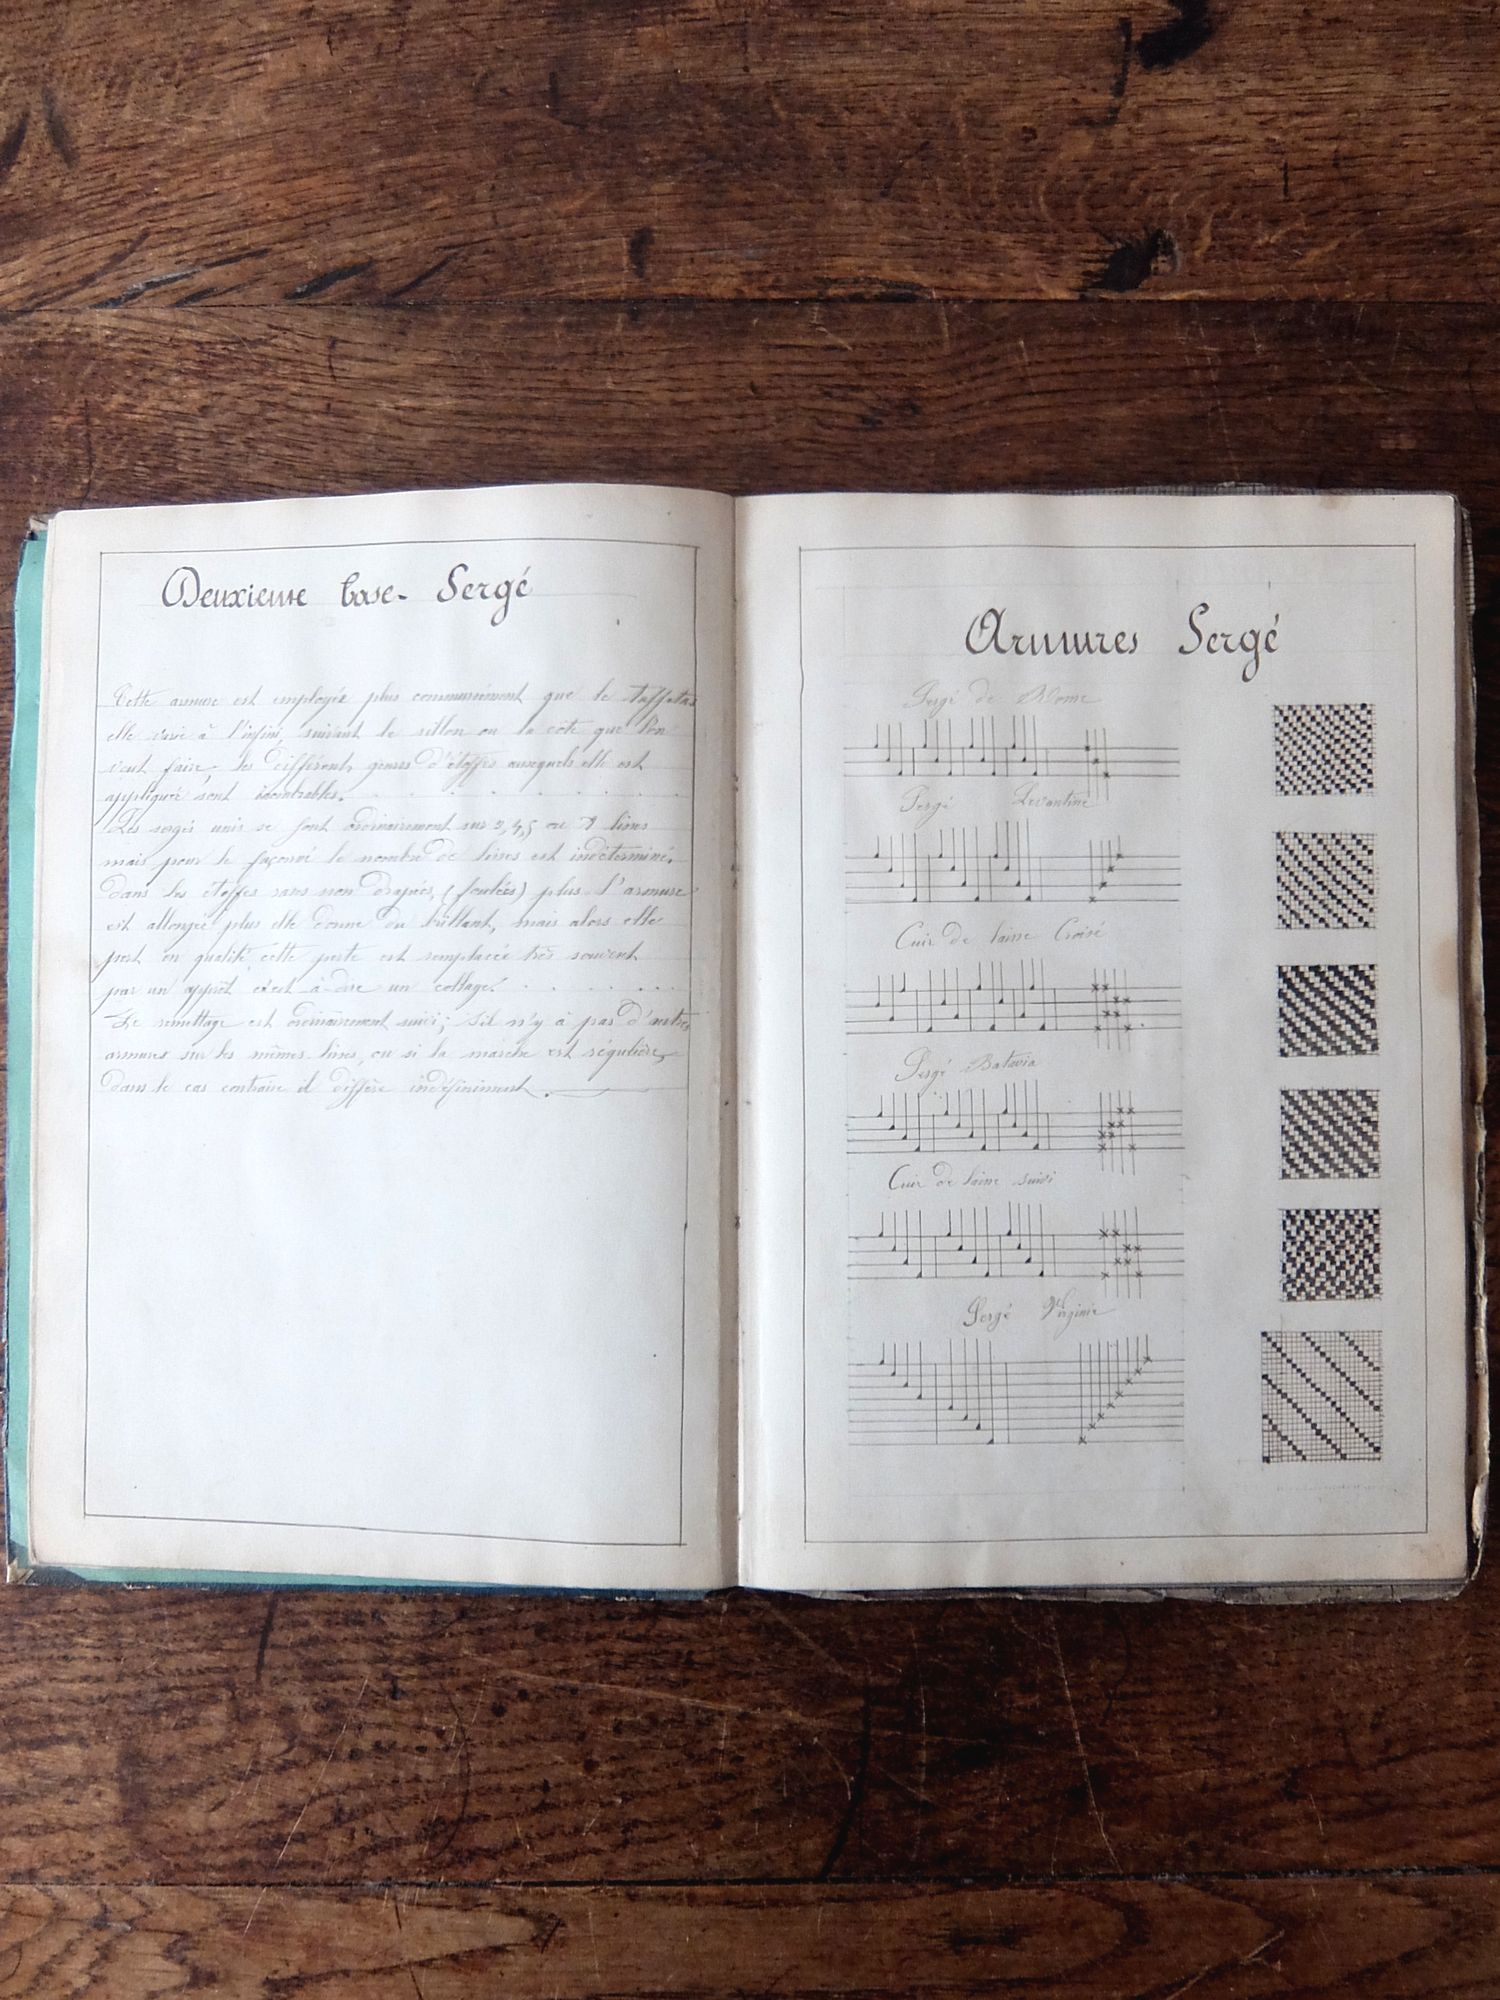 Deuxième base - Sergé
Cette armure est employée plus communément que le taffetas
elle varie à l'infini, suivant le sillon ou la côte que l'on
veut faire; les différents genres d'étoffes auxquels elle est
appliquée sont
Les sergés unis se font ordinairement sur 3, 4, 5 ou lisses
mais pour le façonné le nombre de lisses est indéterminé,
dans les étoffes rases non drapées, (foulées) plus l'armure
est allongée plus elle donne du brillant, mais alors elle
perd en qualité cette perte est remplacée très souvent
par un apprêt c'est à-dire un collage.
Le remettage est ordinairement suivi; s'il n'y à pas d'autres
armures sur les mêmes lisses, ou si la marche est régulière,
dans le cas contraire il diffère indéfiniment.
Armures Sergé
Sergé de Rome
Sergé Levantine
Cuir de laine Croisé
Sergé Batavia
Cuir de laine suivi
Sergé Virginie